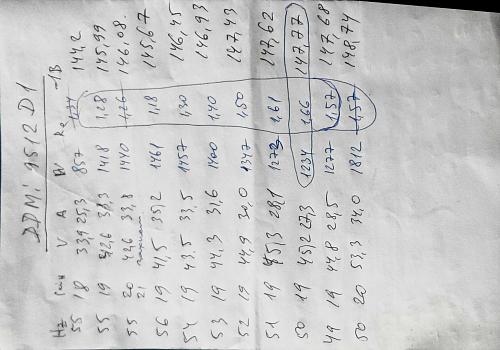 DDMi 9512 D1
Hz V A W -1В
55 18 33,9 25,3 857 144,2
55 19 42,6 33,3 1418 1,28 145,99
55 20 42,6 33,8 1440 1,26 146,08.
21
56 19 41,5 35,2 1461 1,18 145,67
54 19 43,5 33,5 1457 1,30 146,45
53 19 44,3 31,6 1400 1,40 146,93
52 19 44,9 30,0 1347 1,50 147,43
51 19 45,3 28,1 1272 1,61 147,62
50 19 45,2 27,3 1234 1,66 147,77
49 19 44,8 28,5 1277 1,57 147,68
50 20 53,3 34,0 1812 1,57 148,74